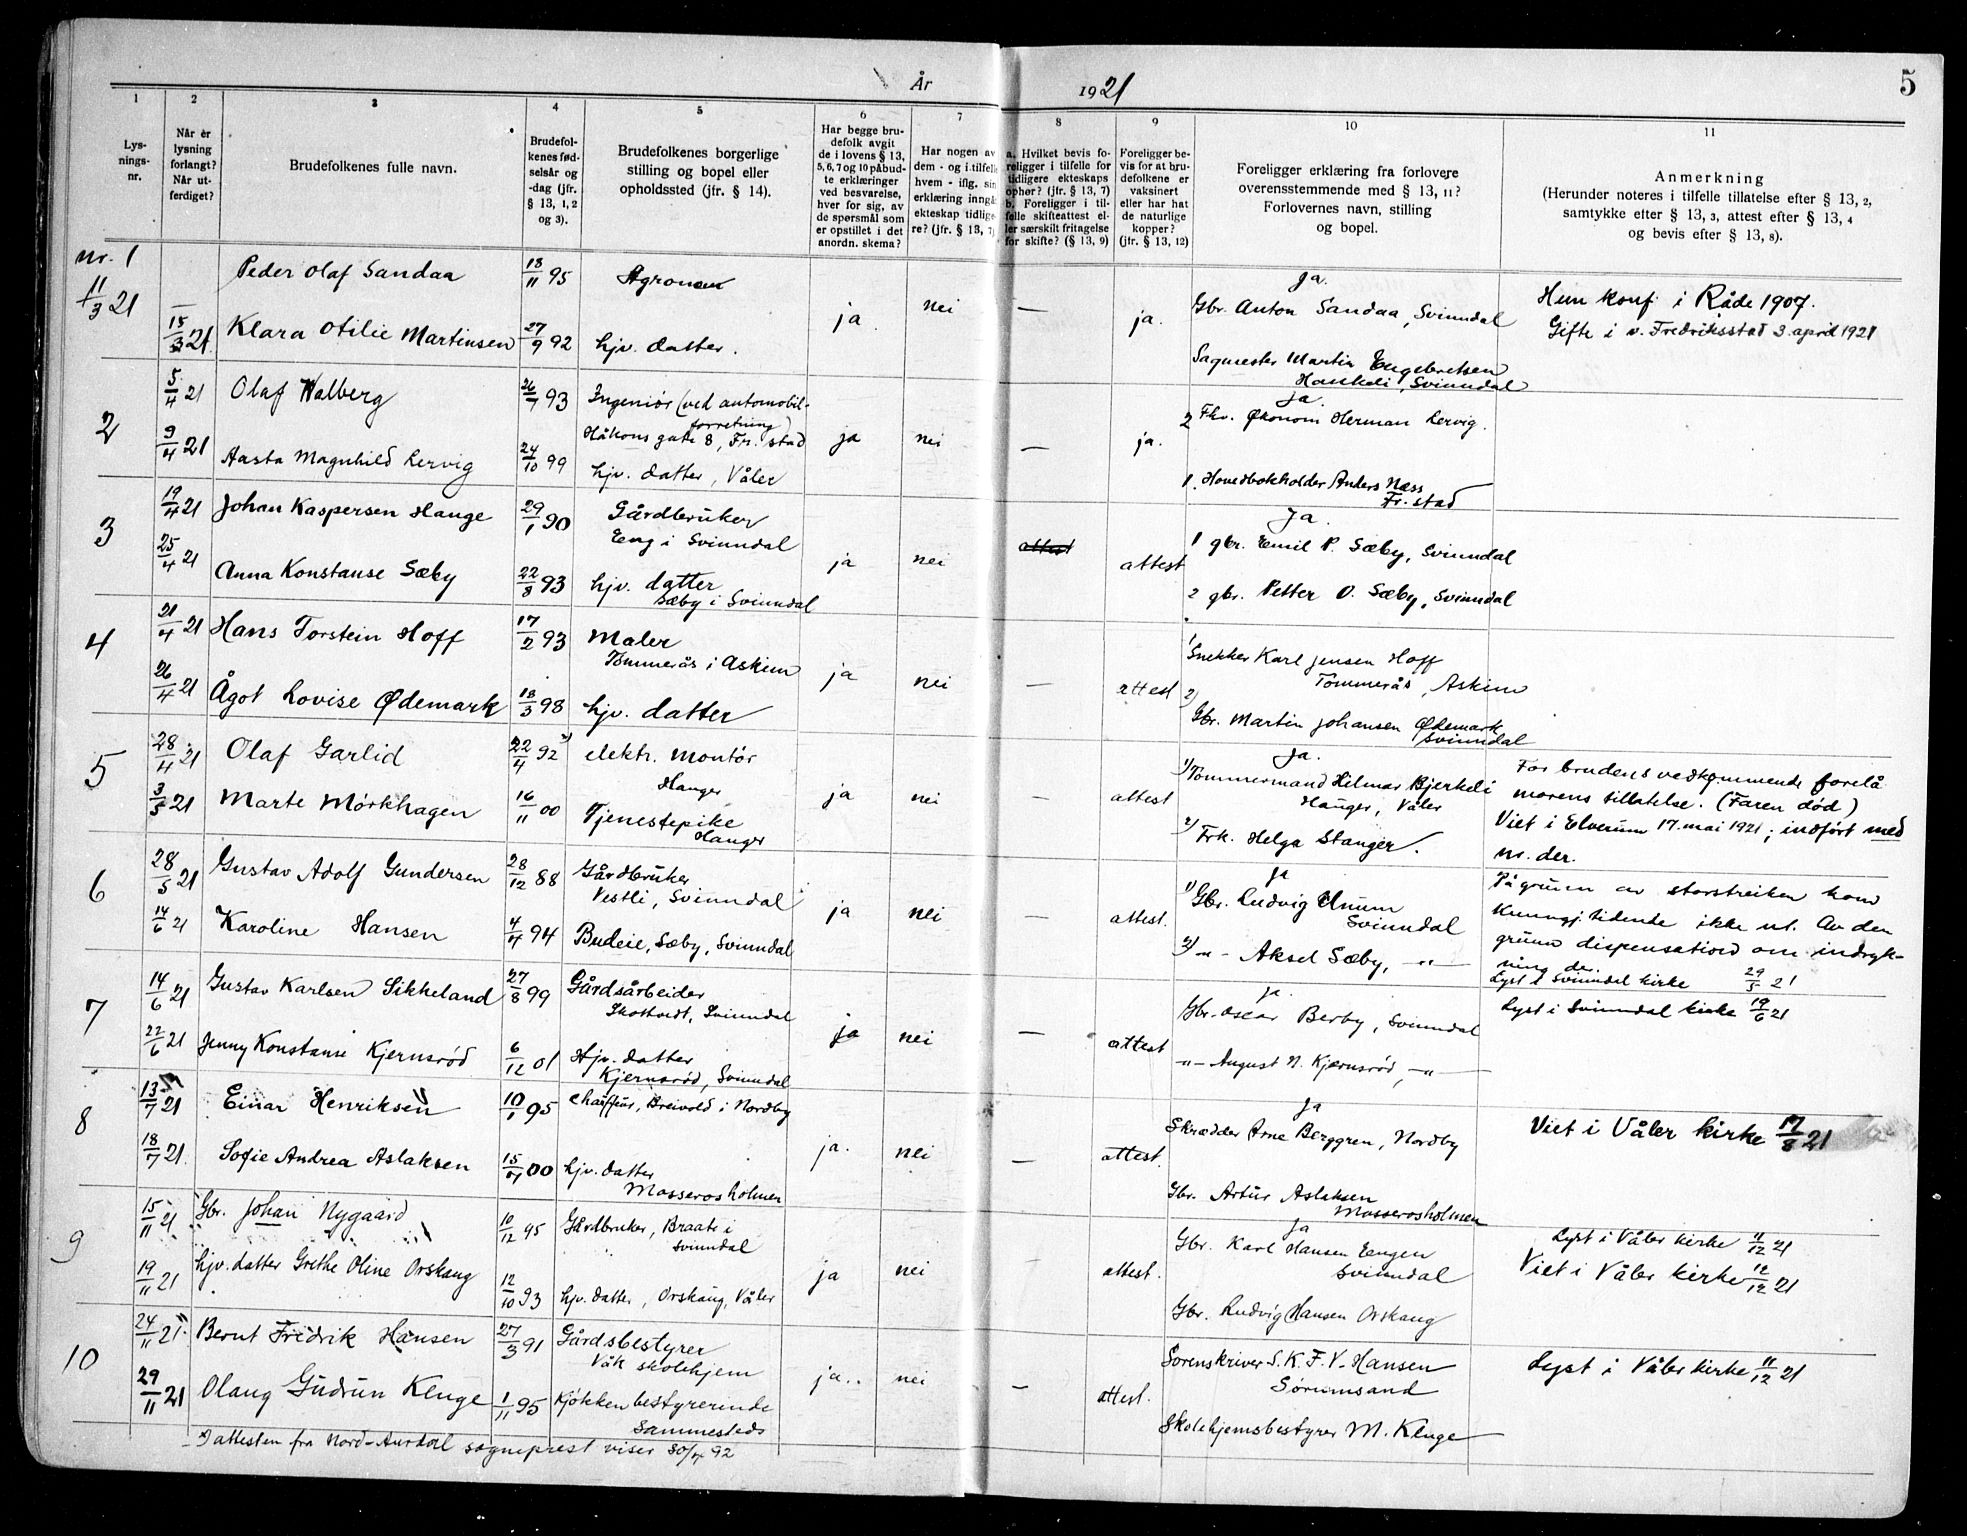 År 1921
5
1
2
3
4
5
6
7
8
9
10
11
Lys-
nings-
nr.
Når er
lysning
forlangt?
Når ut-
ferdiget?
Brudefolkenes fulle navn.
Brudefol-
kenes fød-
selsår og
-dag (jfr.
§ 13, 1, 2
og 3).
Brudefolkenes borgerlige
stilling og bopel eller
opholdssted (jfr. § 14).
Har begge bru-
defolk avgit
de i lovens § 13,
5, 6, 7 og 10 påbud-
te erklæringer
ved besvarelse,
hver for sig, av
de spørsmål som
er opstillet i det
anordn. skema?
Har nogen av
dem - og i tilfelle
hvem - iflg. sin
erklæring inngå
ekteskap tidlige-
re? (jfr. § 13, 7)
a. Hvilket bevis fo-
religger i tilfelle for
tidligere ekteskaps
ophør? (jfr. § 13, 7)
b. Foreligger i til-
felle skifteattest el-
ler særskilt fritagelse
for skifte? (§ 13, 9)
Foreligger be-
vis for at bru-
defolkene er
vaksinert
eller har hat
de naturlige
kopper?
(jfr. § 13, 12)
Foreligger erklæring fra forlovere
overensstemmende med § 13, 11?
Forlovernes navn, stilling
og bopel.
Anmerkning
(Herunder noteres i tilfelle tillatelse efter § 13, 2,
samtykke efter § 13, 3, attest efter § 13, 4
og bevis efter § 13, 8).
nr. 1
11/3 21
15/3 21
Peder Olaf Sandaa
18/11 95
Agronom
Klara Otilie Martinsen
27/9 92
hjv. datter.
ja.
nei
—
ja.
Ja.
Gbr. Anton Sandaa, Svinndal
Sagmester Martin Engebretsen
Haukeli, Svinndal
Hun konf i Råde 1907.
Gifte i v. Fredriksstad 3. april 1921
2
5/4 21
9/4 21
Olaf Walberg
26/7 93
Ingeniør (ved automobil-
forretning)
Håkons gate 8, Fr. stad
Aasta Magnhild Lervig
24/10 99
hjv. datter, Våler
ja
nei
—
ja.
Ja.
2 Fhv. Økonom Herman Lervig.
1. Hovedbokholder Anders Næss
Fr. stad
3
19/4 21
25/4 21
Johan Kaspersen Hauge
29/1 90
Gårdbruker
Eng i Svinndal
Anna Konstanse Sæby
22/8 93
hjv. datter
Sæby i Svinndal
ja
nei
attest
attest
Ja.
1 gbr. Emil P. Sæby, Svinndal
2 gbr. Petter O. Sæby, Svinndal
4
21/4 21
26/4 21
Hans Torstein Hoff
17/2 93
Maler
Tømmerås i Askim
Ågot Lovise Ødemark
18/3 98
hjv. datter
ja
nei
—
attest
1 Snekker Karl Jensen Hoff
Tømmerås, Askim
2) Gbr. Martin Johansen Ødemark
Svinndal
5
28/4 21
3/5 21
Olaf Garlid
22/4 92 x)
elektr. montør
Hauger
Marte Mørkhagen
16/11 00
Tjenestepike
Hauger
ja
nei
—
attest
Ja.
1) Tømmermand Helmar Bjerkeli
Hauger, Våler
2) Frk. Helga Stanger.
For brudens vedkommende forelå
morens tillatelse. (Faren død)
Viet i Elverum 17. mai 1921; indført med
nr. der.
6
28/5 21
14/6 21
Gustav Adolf Gundersen
28/12 88
Gårdbruker
Vestli, Svinndal
Karoline Hansen
4/4 94
Budeie, Sæby, Svinndal
ja
nei
—
attest.
ja
1) Gbr. Ludvig Unum
Svinndal
2) -"- Aksel Sæby, -"-
På grunn av storstreiken kom
Kunngj. tidende ikke ut. Av den
grunn dispensation om indryk-
ning der.
Lyst i Svinndal kirke 29/5 21
7
14/6 21
22/6 21
Gustav Karlsen Sikkeland
27/8 99
Gårdsarbeider
Skottvedt, Svinndal
Jenny Konstanse Kjernsrød
6/12 01
Hjv. datter
Kjernsrød, Svinndal
ja
nei
—
attest
Ja.
Gbr. Oscar Berby, Svinndal
-"- August N. Kjernsrød, -"-
Lyst i Svinndal kirke 19/6 21
8
13/7 21
18/7 21.
Einar Henriksen
10/1 95
Chauffør, Breivold i Nordby
Sofie Andrea Aslaksen
00
hjv. datter
Mosserosholmen
ja.
nei
—
attest.
Ja
Skrædder Arne Berggren, Nordby
Gbr. Artur Aslaksen
Mosserosholmen
Viet i Våler kirke 17/8 21
9
15/11 21
19/11 21
Gbr. Johan Nygaard
10/12 95
Gårdbruker, Braate i
Svinndal
hjv. datter Grethe Oline Orskaug
12/10 93
hjv. datter, Orskaug, Våler
ja
nei
attest.
Ja
Gbr. Karl Hansen Eengen
Svinndal
Gbr. Ludvig Hansen Orskaug
Lyst i Våler kirke 11/12 21
Viet i Våler kirke 12/12 21
10
24/11 21
29/11 21
Bernt Fredrik Hansen
27/3 91
Gårdsbestyrer
Våk skolehjem
Olaug Gudrun Kluge
1/11 95
Kjøkkenbestyrerinde
Sammesteds
ja..
nei
—
attest.
Sorenskriver S. K. F. V. Hansen
Sørumsand
Skolehjemsbestyrer M. Kluge
Lyst i Våler kirke 11/12 21
x) attesten fra Nord-Aurdal sogneprest viser 30/4 92